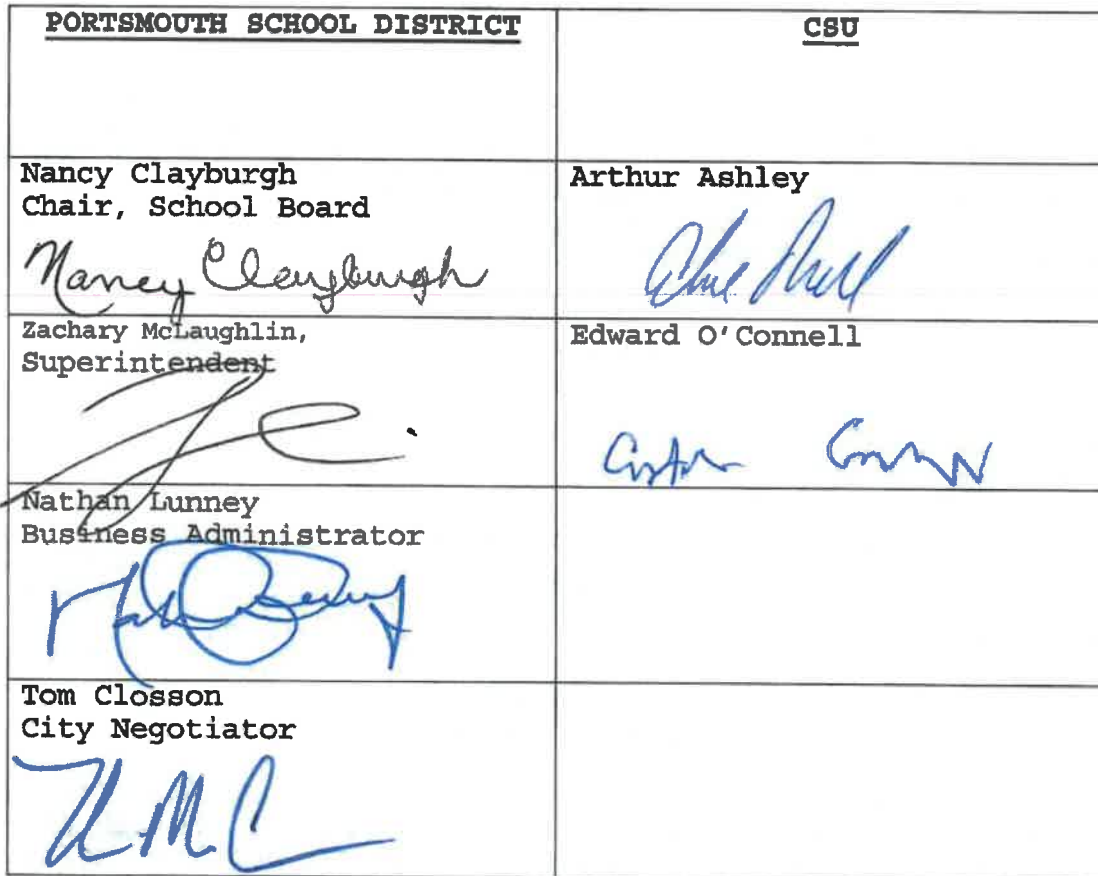 PORTSMOUTH SCHOOL DISTRICT
CSU
Nancy Clayburgh
Chair, School Board
Nancy Clayburgh
Arthur Ashley
Zachary McLaughlin,
Superintendent
Edward O'Connell
Nathan Lunney
Business Administrator
Tom Closson
City Negotiator